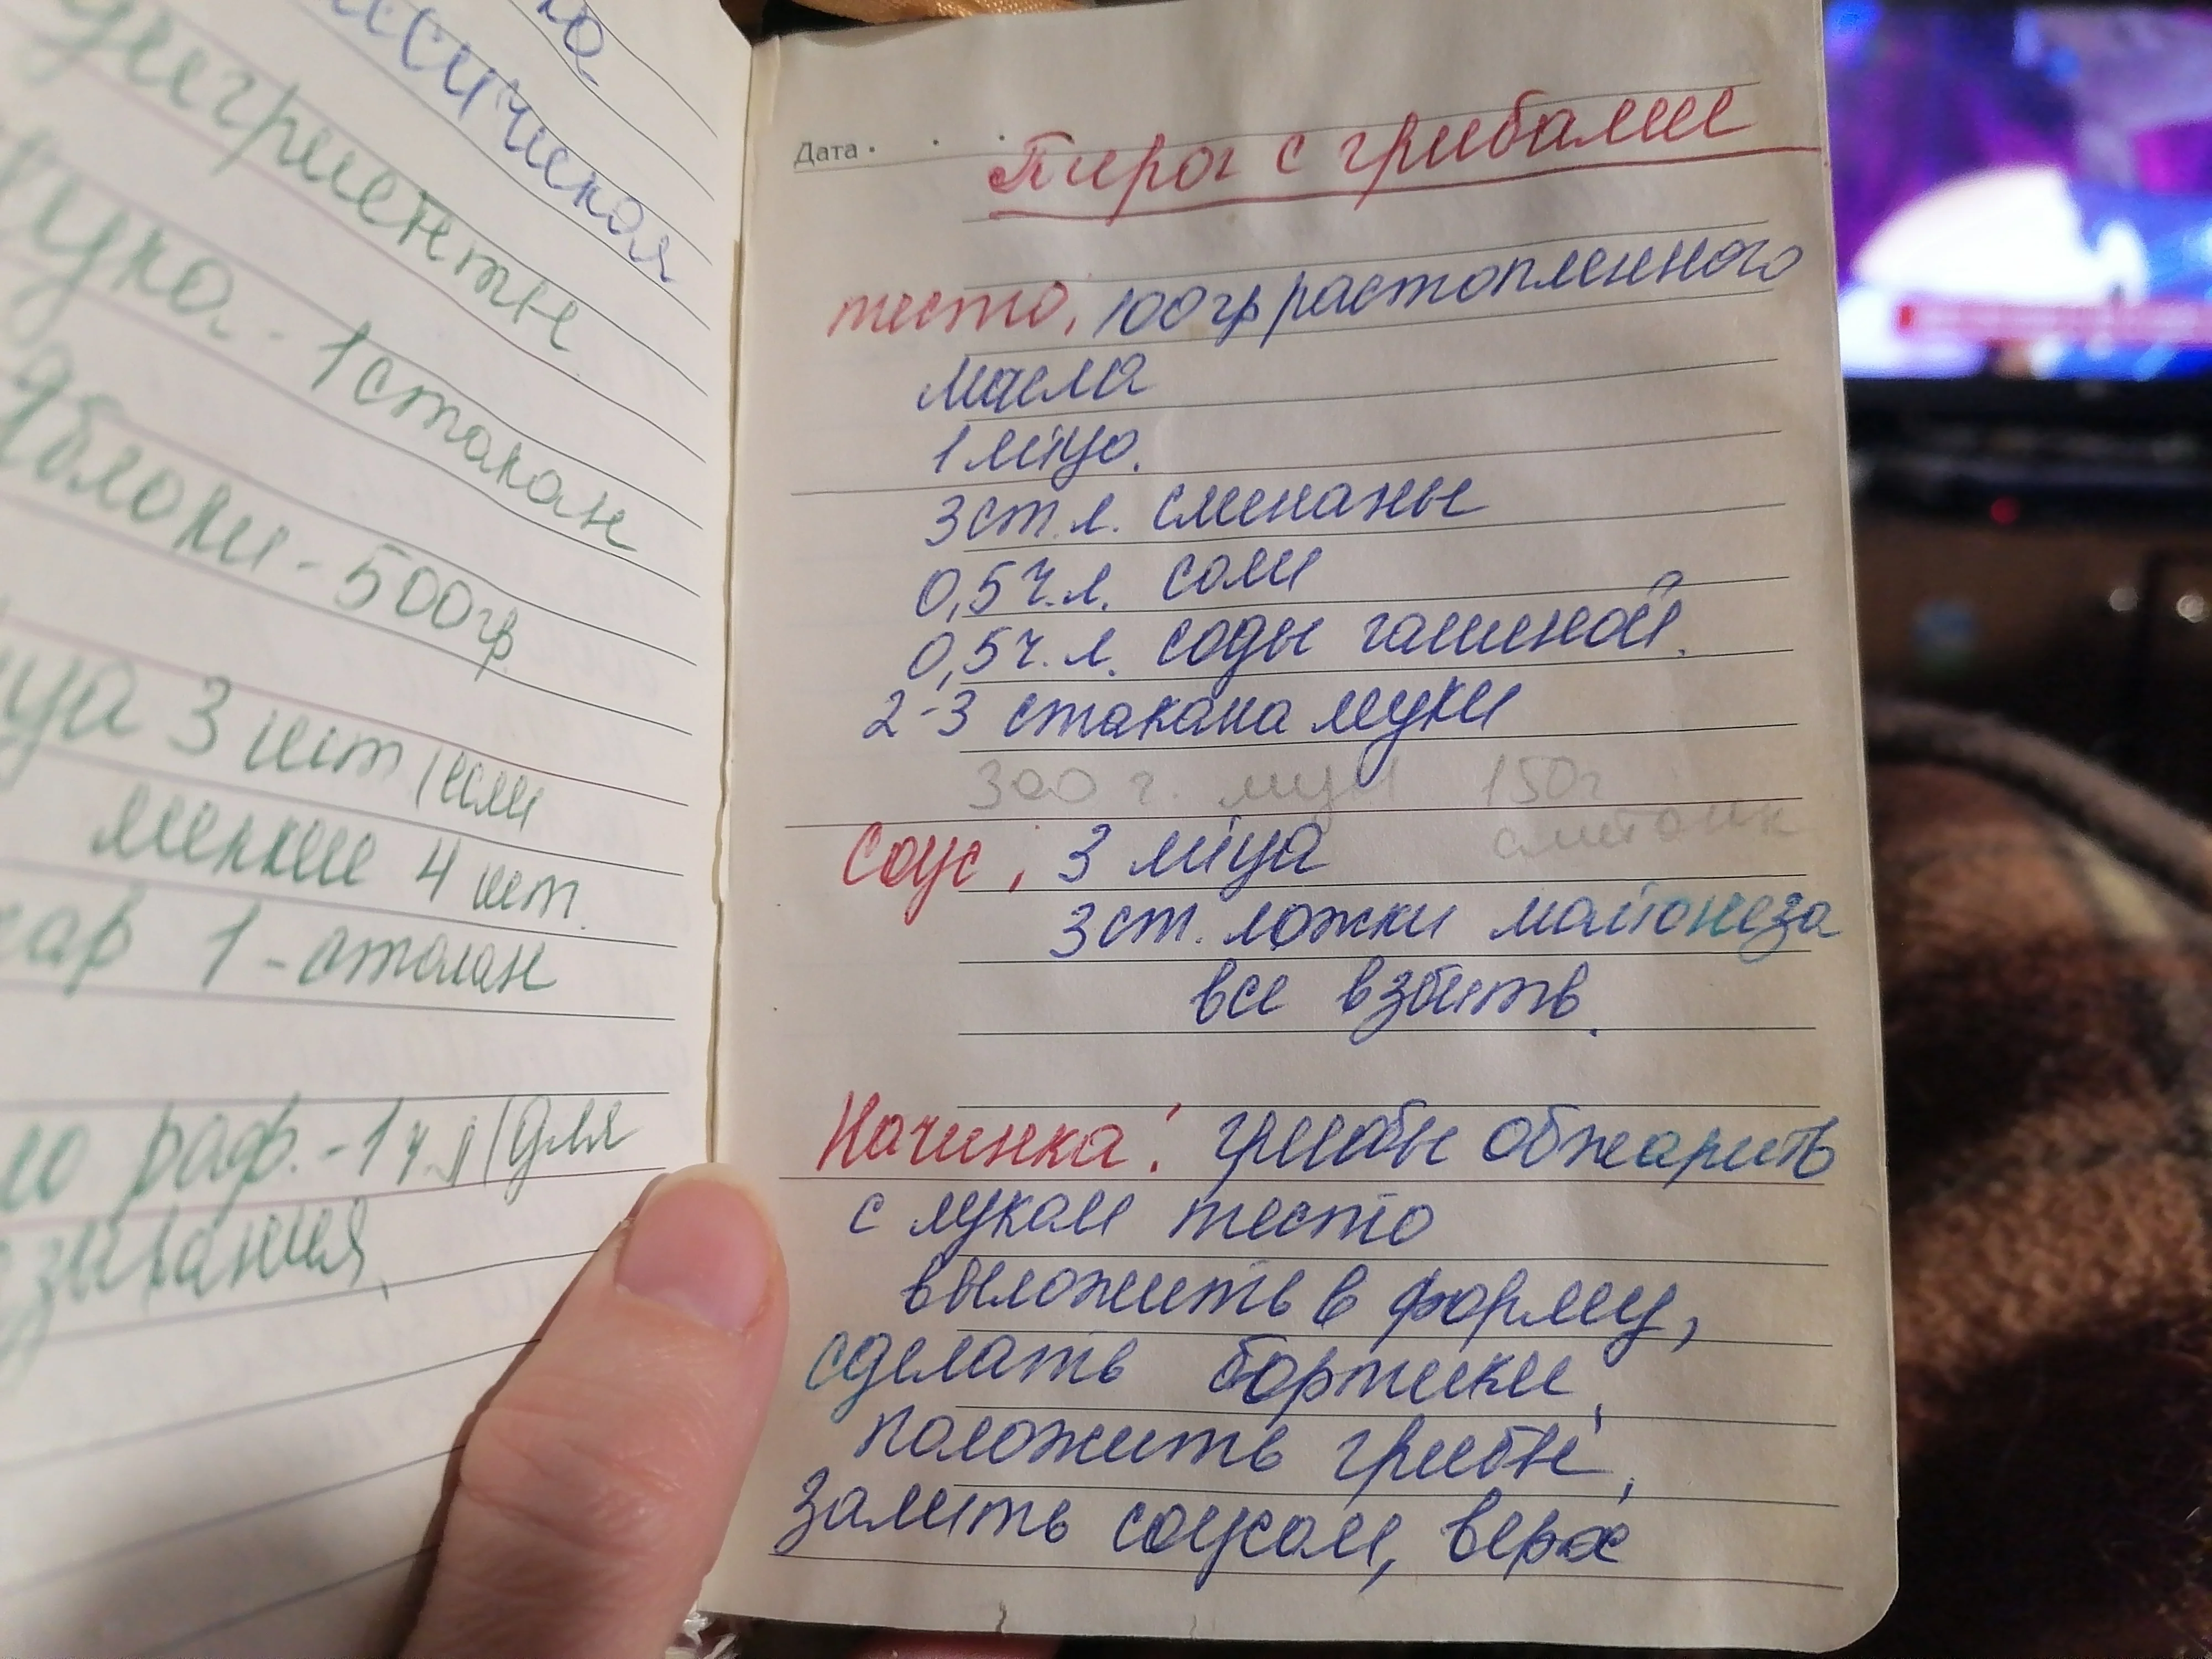 ингриенты
Мука - 1 стакан
яблоки - 500гр
3 шт (или
мелкие 4 шт.
1 - стакан
раф. - 1 ч. л (для
Дата
Пирог с грибами
тесто, 100 гр растопленного
масла
1 яйцо.
3 ст. л. сметаны
0,5 ч. л. соли
0,5 ч. л. соды гашеной.
2-3 стакана муки
300 г. мук 150г
сметаны
Соус; 3 яйца
3 ст. ложки майонеза
все взбить.
Начинка: грибы обжарить
с луком тесто
выложить в форму,
сделать бортики,
положить грибы,
залить соусом, верх